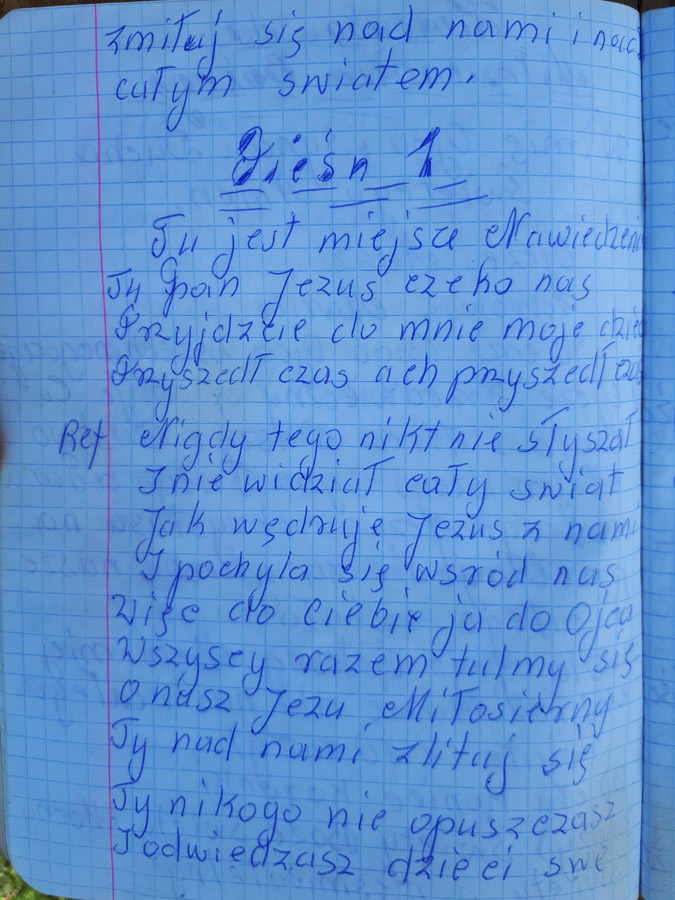 zmiłuj się nad nami i nad
całym swiatem.
Pieśn 1
Tu jest miejsce Nawiedzeni
Tu Pan Jezus czeko nas
Przyjdzcie do mnie moje dzie
Przyszedł czas ach przyszedł czas
Ref Nigdy tego nikt nie słyszał
I nie widział cały swiat
Jak wędruję Jezus z nami
I pochyla się wsród nas
Więc do Ciebie ja do Ojca
Wszyscy razem tulmy się
O nasz Jezu Miłosierny
Ty nad nami zlituj się
Ty nikogo nie opuszczasz
I odwiedzasz dzieci swe